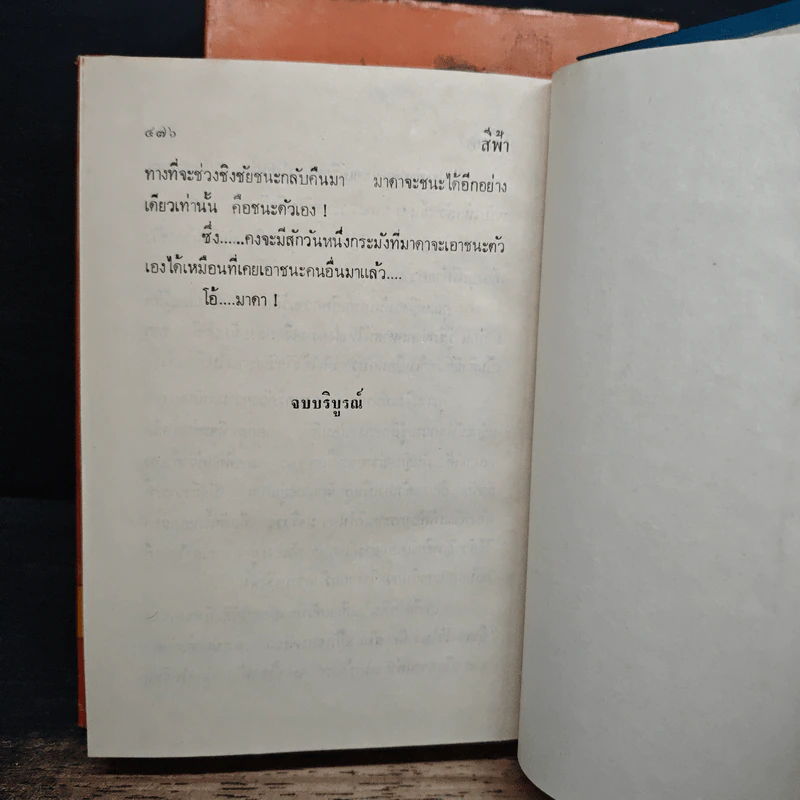 ๔๗๖ สีฟ้า
ทางที่จะช่วงชิงชัยชนะกลับคืนมา มาดาจะชนะได้อีกอย่าง
เดียวเท่านั้น คือชนะตัวเอง !
ซึ่ง......คงจะมีสักวันหนึ่งกระมังที่มาดาจะเอาชนะตัว
เองได้เหมือนที่เคยเอาชนะคนอื่นมาแล้ว....
โอ้....มาดา !
จบบริบูรณ์